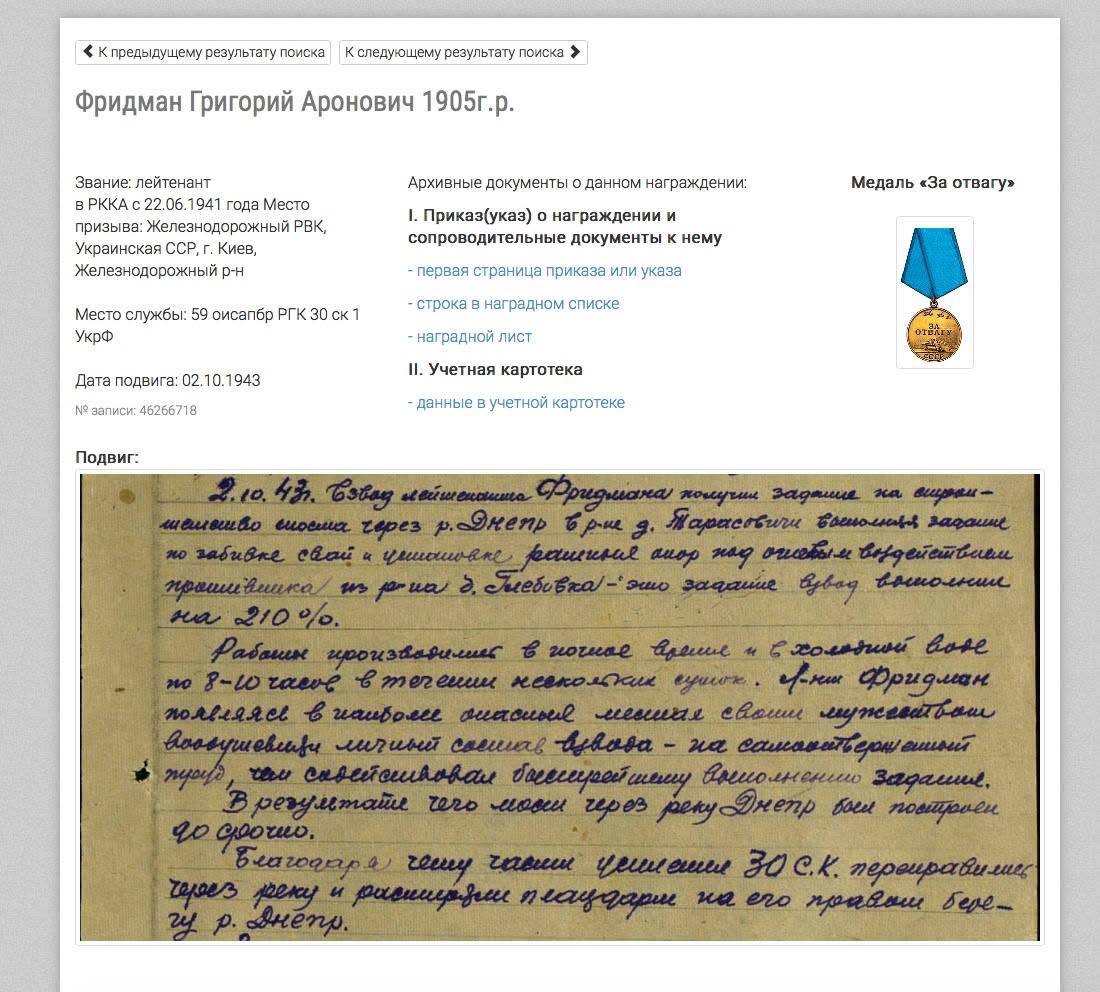 К предыдущему результату поиска
К следующему результату поиска
Фридман Григорий Аронович 1905г.р.
Звание: лейтенант
в РККА с 22.06.1941 года Место
призыва: Железнодорожный РВК,
Украинская ССР, г. Киев,
Железнодорожный р-н
Место службы: 59 оисапбр РГК 30 ск 1
УкрФ
Дата подвига: 02.10.1943
№ записи: 46266718
Архивные документы о данном награждении:
I. Приказ(указ) о награждении и
сопроводительные документы к нему
- первая страница приказа или указа
- строка в наградном списке
- наградной лист
II. Учетная картотека
- данные в учетной картотеке
Медаль «За отвагу»
ЗА
ОТВАГУ
СССР
Подвиг:
2.10.43г. Взвод лейтенанта Фридмана получил задание на строи-
тельство моста через р. Днепр в р-не д. Тарасовичи выполняя задание
по забивке свай и установке рамных опор под огневым воздействием
противника из р-на д. Глебовка - это задание взвод выполнил
на 210%.
Работы производились в ночное время и в холодной воде
по 8-10 часов в течении нескольких суток. Л-нт Фридман
появляясь в наиболее опасных местах своим мужеством
воодушевлял личный состав взвода - на самоотверженный
труд, чем содействовал быстрейшему выполнению задания.
В результате чего мост через реку Днепр был построен
до срочно.
Благодаря чему части усиления 30 С.К. переправились
через реку и расширили плацдарм на его правом бере-
гу р. Днепр.